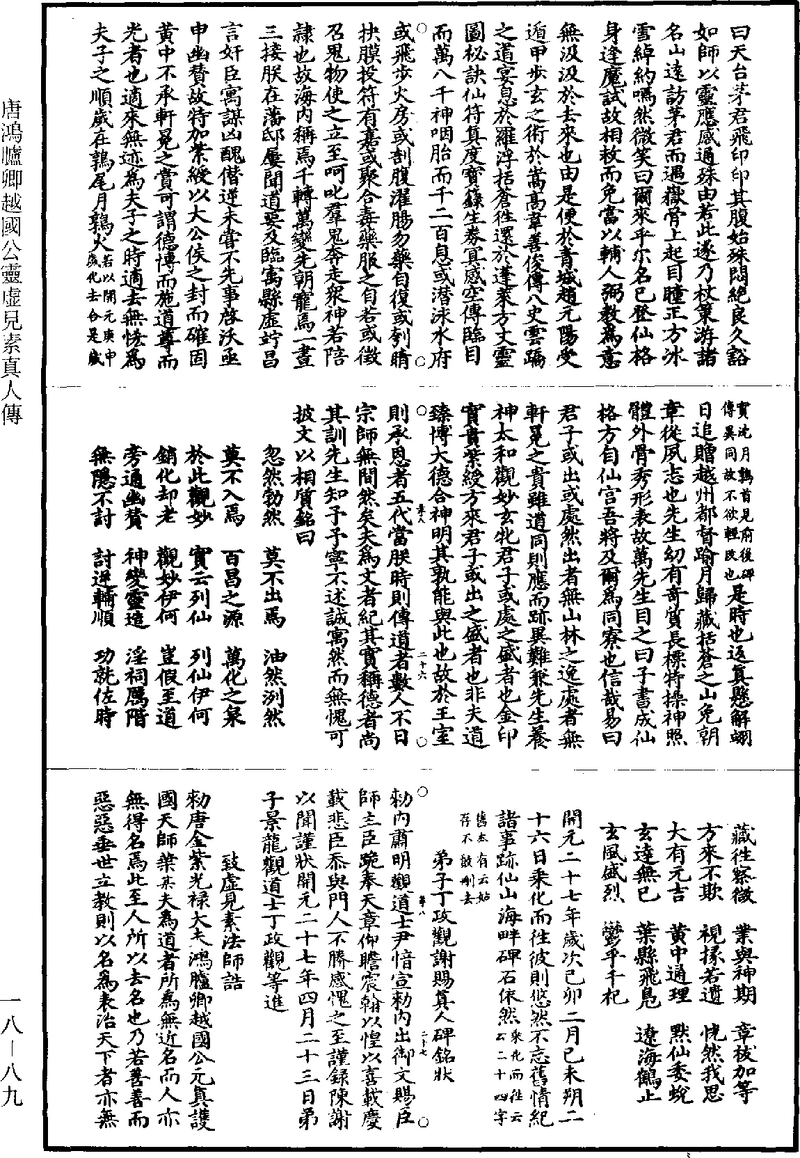 曰天台茅君飛印印其腹始殊悶絕良久豁
如師以靈應感通殊由若此遂乃杖策游諸
名山遠訪茅君而遇嶽骨上起目瞳正方冰
雪綽約嗎然微笑曰爾來乎尓名已登仙格
身逢魔試故相救而免當以輔人弼教為意
無汲汲於去來也由是便於青城趙元陽受
遁甲步玄之術於嵩高韋善俊傳八史雲蹻
之道宴息於羅浮括蒼往還於蓬萊方丈靈
圖秘訣仙符真度寶籙生券冥感空傳臨目
而萬八千神咽胎而千二百息或潛泳水府
或飛步火房或剖腹濯腸勿藥自復或刳睛
抉膜投符有嘉或聚合毒藥服之自若或徵
召鬼物使之立至呵叱羣鬼奔走衆神若陪
隸也故海內稱焉千轉萬變先朝寵焉一晝
三接朕在藩邸屢聞道要及臨寓縣虛竚昌
言奸臣寓謀凶醜僭逆未嘗不先事啓沃亟
申幽贊故特加紫綬以大公侯之封而確固
黃中不承軒冕之賞可謂德博而施道尊而
光者也適來無迹為夫子之時適去無悕為
夫子之順歲在鶉尾月鶉火若以開元庚申歲化去合是歲
實沈月鶉首見前後碑傳異同故不欲輕改也是時也返真懸解蛻
日追贈越州都督踰月歸藏括蒼之山免朝
章從夙志也先生幼有奇質長標特操神照
體外骨秀形表故萬先生目之曰子書成仙
格方自仙官吾將及爾為同寮也信哉易曰
君子或出或處然出者無山林之逸處者無
軒冕之貴雖道同則應而跡異難兼先生養
神太和觀妙玄牝君子或處之盛者也金印
寶賁紫綬方來君子或出之盛者也非夫道
臻博大德合神明其孰能與此也故於王室
則承恩者五代當朕時則傳道者數人不日
宗師無間然矣夫為文者紀其實稱德者尚
其訓先生知予予寧不述誠寓然而無愧可
披文以相質銘曰
忽然勃然　莫不出焉　油然泬然
莫不入焉　百昌之源　萬化之泉
於此觀妙　實云列仙　列仙伊何
銷化却老　觀妙伊何　豈假至道
旁通幽贊　神變靈造　淫祠厲階
無隱不討　討逆輔順　功就佐時
藏往察微　業與神期　章紱加等
方來不欺　視掾若遺　恍然我思
大有元吉　黃中通理　默仙委蛻
玄達無已　葉縣飛鳧　遼海鶴止
玄風盛烈　鬱乎千杞
開元二十七年歲次己卯二月己未朔二
十六日乘化而往彼則悠然不忘舊情紀
諸事跡仙山海畔碑石依然乘化而往云云二十四字
舊本有云始存不敢刪去
弟子丁政觀謝賜真人碑銘狀
勑內肅明觀道士尹愔宣勑內出御文賜臣
師主臣跪奉天章仰瞻宸翰以惶以喜載慶
載悲臣忝與門人不勝感愧之至謹録陳謝
以聞謹狀開元二十七年四月二十三日弟
子景龍觀道士丁政觀等進
致虛見素法師誥
勑唐金紫光祿大夫鴻臚卿越國公元真護
國天師葉某夫為道者所為無近名而人亦
無得名焉此至人所以去名也乃若善善而
惡惡垂世立教則以名為表治天下者亦無
唐鴻臚卿越國公靈虛見素真人傳
一八－八九